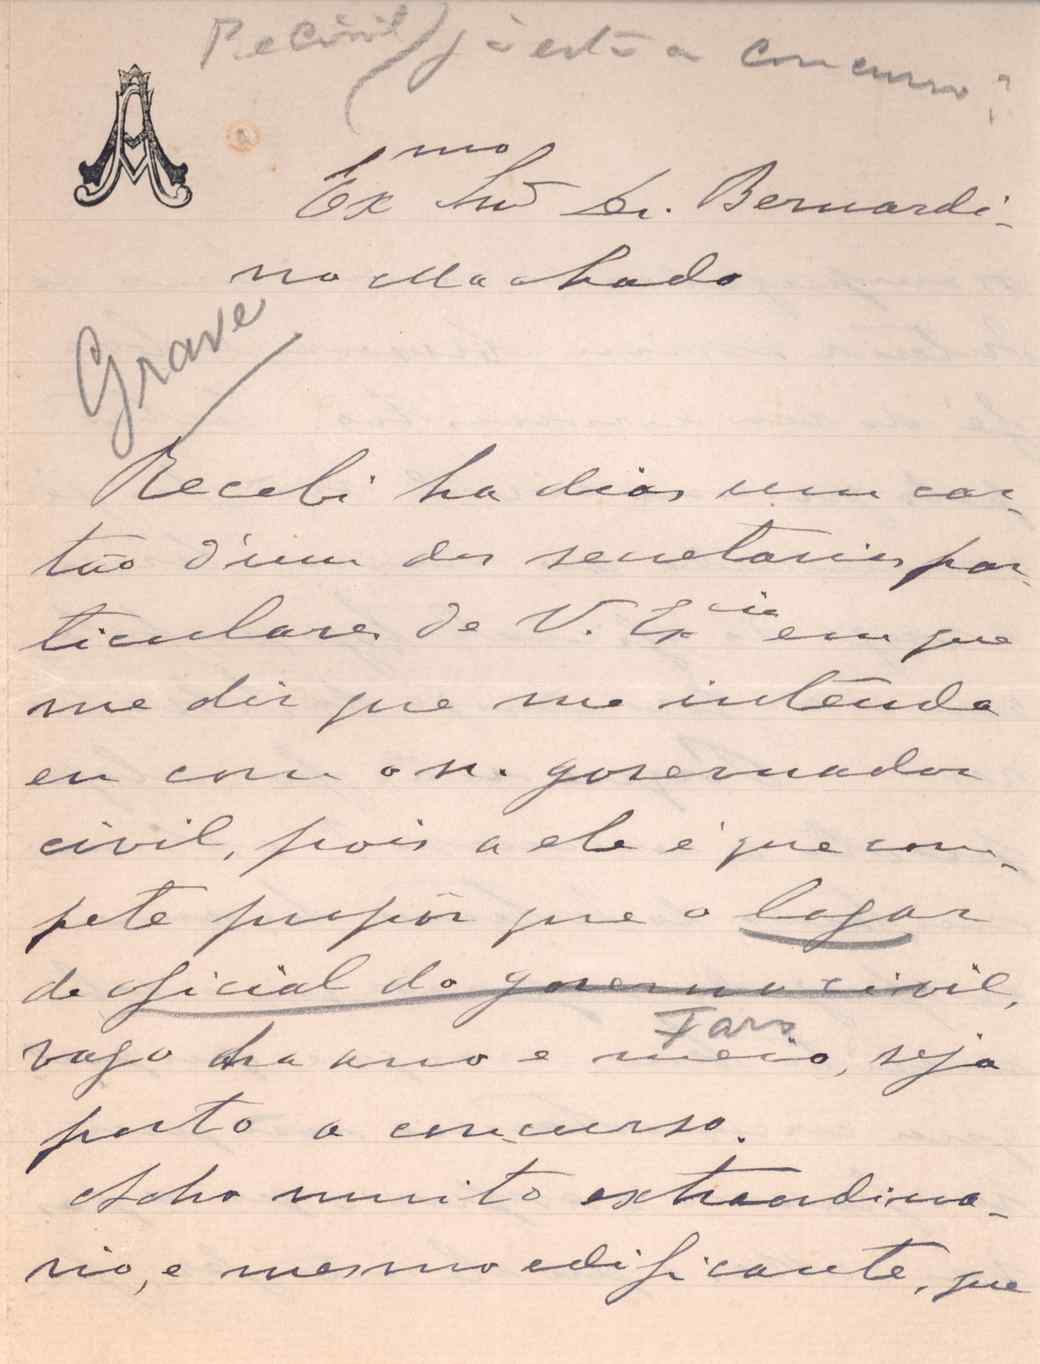 já está a concurso?
Ex.mo Snr Dr. Bernardi-
no Machado
Grave
Recebi ha dias um car-
tão d'um dos secretarios par-
ticulares de V. Ex.cia em que
me diz que me intenda
eu com o sr. governador
civil, pois a ele é que com-
pete propôr que o logar
de oficial do governo civil,
Faro
vago ha ano e meio, seja
posto a concurso.
Acho muito extraordina-
rio, e mesmo edificante, que